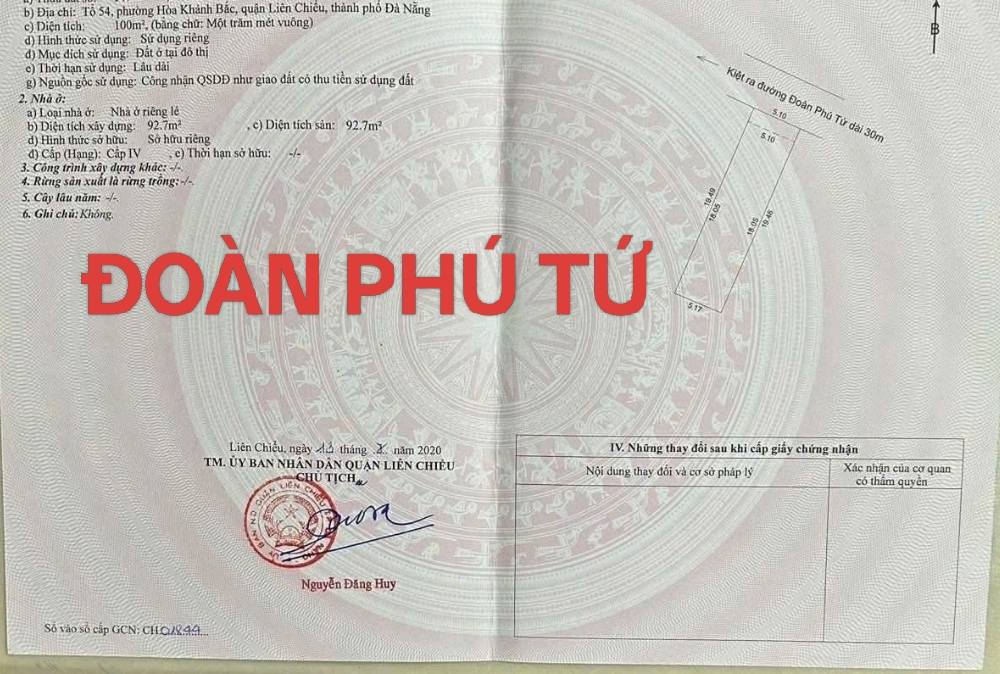 b) Địa chỉ: Tổ 54, phường Hòa Khánh Bắc, quận Liên Chiểu, thành phố Đà Nẵng
c) Diện tích: 100m², (bằng chữ: Một trăm mét vuông)
d) Hình thức sử dụng: Sử dụng riêng
đ) Mục đích sử dụng: Đất ở tại đô thị
e) Thời hạn sử dụng: Lâu dài
g) Nguồn gốc sử dụng: Công nhận QSDĐ như giao đất có thu tiền sử dụng đất
2. Nhà ở:
a) Loại nhà ở: Nhà ở riêng lẻ
b) Diện tích xây dựng: 92.7m² , c) Diện tích sàn: 92.7m²
d) Hình thức sở hữu: Sở hữu riêng
đ) Cấp (Hạng): Cấp IV , e) Thời hạn sở hữu: -/-
3. Công trình xây dựng khác: -/-
4. Rừng sản xuất là rừng trồng: -/-
5. Cây lâu năm: -/-
6. Ghi chú: Không.
B
Kiệt ra đường Đoàn Phú Tứ dài 30m
5.10
5.10
19.49
18.05
18.05
19.46
5.17
ĐOÀN PHÚ TỨ
Liên Chiểu, ngày tháng năm 2020
TM. ỦY BAN NHÂN DÂN QUẬN LIÊN CHIỂU
CHỦ TỊCH
Nguyễn Đăng Huy
Số vào sổ cấp GCN: CH01844
IV. Những thay đổi sau khi cấp giấy chứng nhận
Nội dung thay đổi và cơ sở pháp lý
Xác nhận của cơ quan
có thẩm quyền